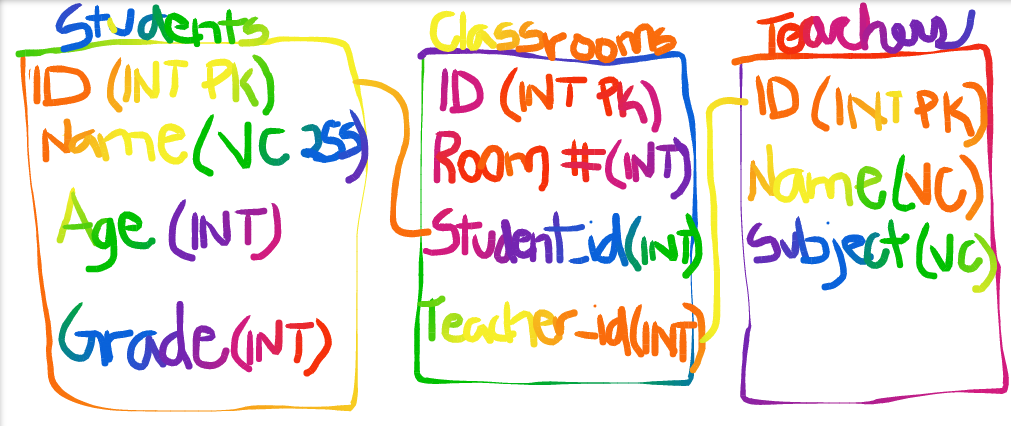 Students
ID (INT PK)
Name (VC 255)
Age (INT)
Grade (INT)
Classrooms
ID (INT PK)
Room # (INT)
Student_id (INT)
Teacher_id (INT)
Teachers
ID (INT PK)
Name (VC)
Subject (VC)